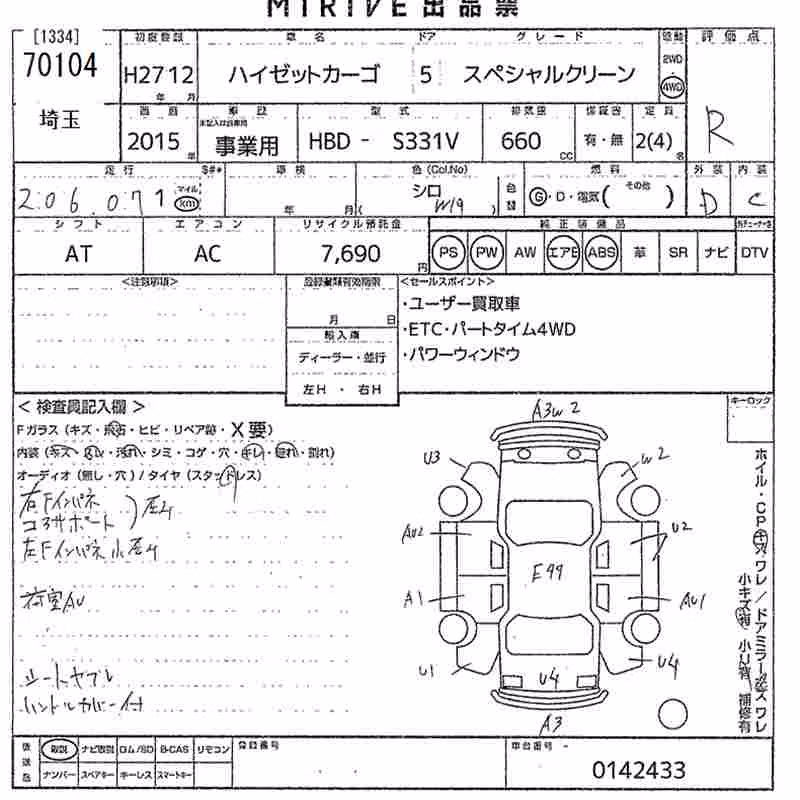 MIRIVE 出品票
[1334]
70104
埼玉
初度登録 車名 ドア グレード 駆動 評価点
H2712 ハイゼットカーゴ 5 スペシャルクリーン 2WD 4WD
年 月
R
車歴 型式 排気量 定員
2015 年 事業用 HBD - S331V 660 CC 有・無 2(4) 名
走行 $#* 車検 色 (Col.No) 燃料 外装 内装
206,071 マイル km 年 月 シロ W19 色替 G・D・電気( その他 ) D C
シフト エアコン リサイクル預託金 純正装備品
AT AC 7,690 円 PS PW AW エアB ABS 革 SR ナビ DTV
<注意事項>
月 日
輸入車
ディーラー・並行
左H ・ 右H
<セールスポイント>
・ユーザー買取車
・ETC・パートタイム4WD
・パワーウィンドウ
キーロック
< 検査員記入欄 >
Fガラス (キズ・飛石・ヒビ・リペア跡・X要)
内装 (キズ・汚れ・シミ・コゲ・穴・キレ・割れ)
オーディオ (無し・穴) / タイヤ (スタッドレス)
右Fインパネ
コアサポート
左Fインパネ小
荷室AU
シートヤブレ
ハンドルカバー付
A3W2
U3
W2
AU2
U2
E99
A1
AU1
U1
U4
U4
A3
ホイル・CPキズ ワレ / ドアミラーキズ ワレ
小キズ有 小U有 補修有
後送品 取説 ナビ取説 ロム/SD B-CAS リモコン
ナンバー スペアキー キーレス スマートキー
登録番号
車台番号 -
0142433